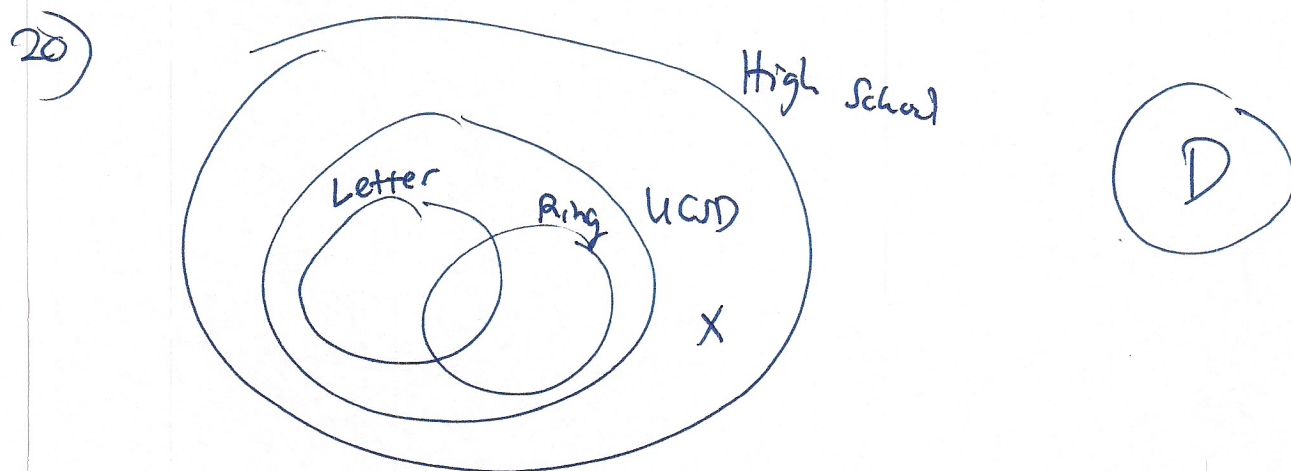 20)
High School
Letter
Ring
UCSD
X
D